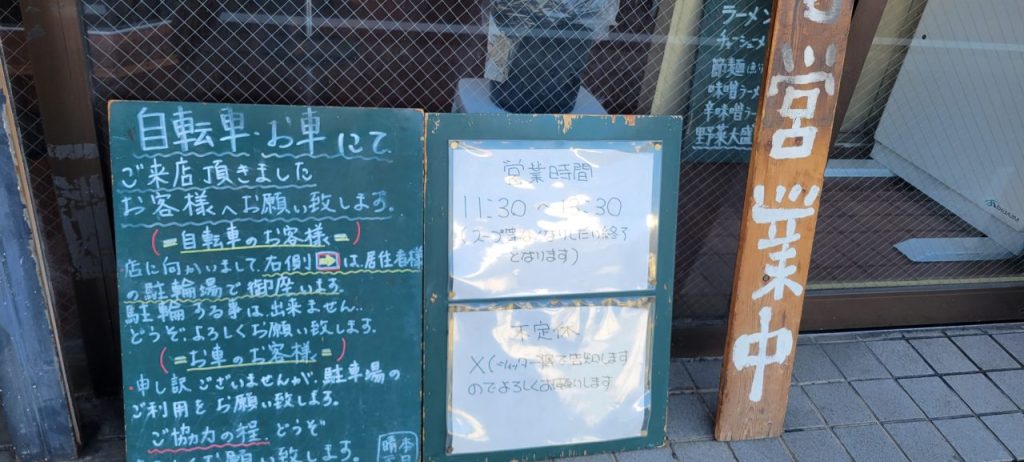 自転車・お車にて
ご来店頂きました
お客様へお願い致します。
(=自転車のお客様=)
店に向かいまして、右側➡は、居住者様
の駐輪場で御座います。
駐輪する事は、出来ません。
どうぞ、よろしくお願い致します。
(=お車のお客様=)
・申し訳ございませんが、駐車場の
ご利用をお願い致します。
ご協力の程、どうぞ
お願い致します。
営業時間
11:30〜
スープ
終了
となります)
不定休
X(
で告知します
のでよろしくお願いします
ラーメン
チャーシューメ
節麺
味噌ラーメ
辛味噌ラー
野菜大盛
営業中